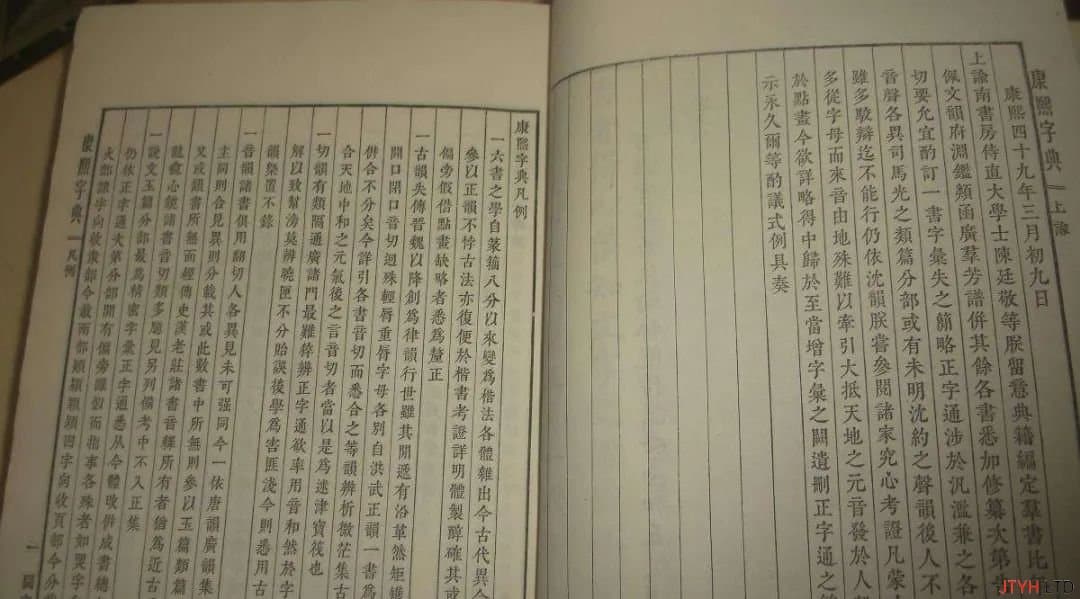 康熙字典 上諭
康熙四十九年三月初九日
上諭南書房侍直大學士陳廷敬等朕留意典籍編定羣書比
佩文韻府淵鑑類函廣羣芳譜併其餘各書悉加修纂次第
切要允宜酌訂一書字彙失之簡略正字通涉於汎濫兼之各
音聲各異司馬光之類篇分部或有未明沈約之聲韻後人不
雖多駁辯迄不能行仍依沈韻朕嘗參閱諸家究心考證凡蒙
多從字母而來音由地殊難以牽引大抵天地之元音發於人
於點畫今欲詳略得中歸於至當增字彙之闕遺刪正字通之
示永久爾等酌議式例具奏
康熙字典凡例
一六書之學自篆籀八分以來變為楷法各體雜出今古代異今
參以正韻不悖古法亦復便於楷書考證詳明體製醇確其或
偏旁假借點畫缺略者悉為釐正
一古韻失傳晉魏以降創為律韻行世雖其間遞有沿革然矩矱
開口閉口音切迥殊輕脣重脣字母各別自洪武正韻一書為
併合不分矣今詳引各書音切而悉合之等韻辨析微茫集古
合天地中和之元氣後之言音切者當以是為迷津寶筏也
一切韻有類隔通廣諸門最難猝辨正字通欲率用音和然於字
解以致幫滂莫辨曉匣不分貽誤後學為害匪淺今則悉用古
韻槩置不錄
一音韻諸書俱用翻切人各異見未可强同今一依唐韻廣韻集
主同則合見異則分載其或此數書中所無則參以玉篇類篇
又或韻書所無而經傳史漢老莊諸書音釋所有者猶為近古
龍龕心鏡諸書音切類多臆見另列備考中不入正集
一說文玉篇分部最為精密字彙正字通悉从今體改併成書總
仍依正字通次第分部間有偏旁雖似而指事各殊者如煛字
火部隸字向收隶部今載雨部熲潁穎頴四字向收頁部今分
康熙字典 凡例 一